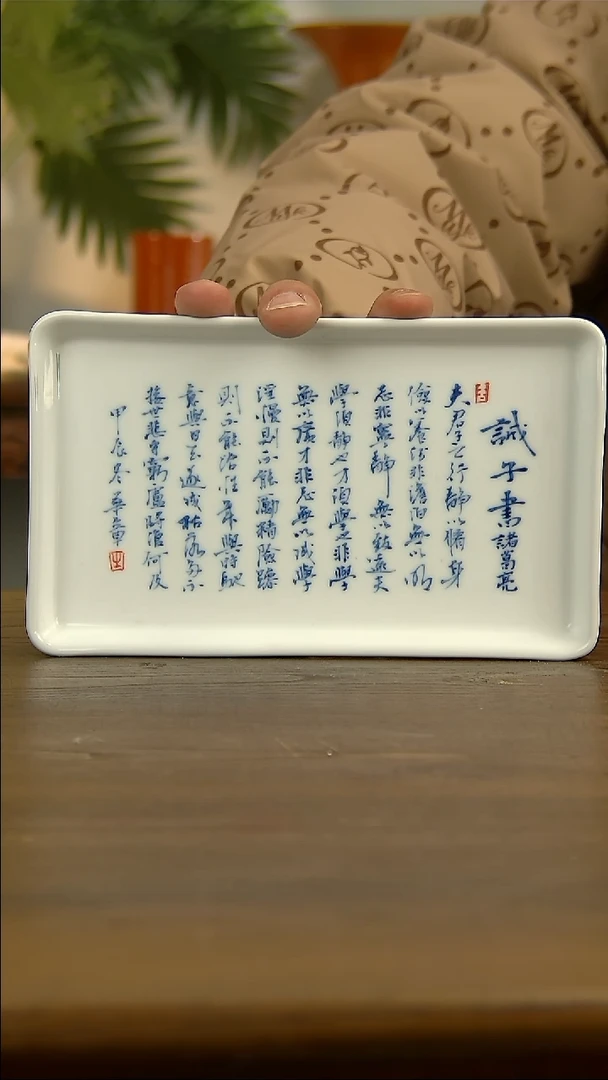 誡子書 諸葛亮
夫君子之行靜以脩身
儉以養德非澹泊無以明
志非寧靜無以致遠夫
學須靜也才須學也非學
無以廣才非志無以成學
淫漫則不能勵精險躁
則不能治性年與時馳
意與日去遂成枯落多不
接世悲守窮廬將復何及
甲辰冬華